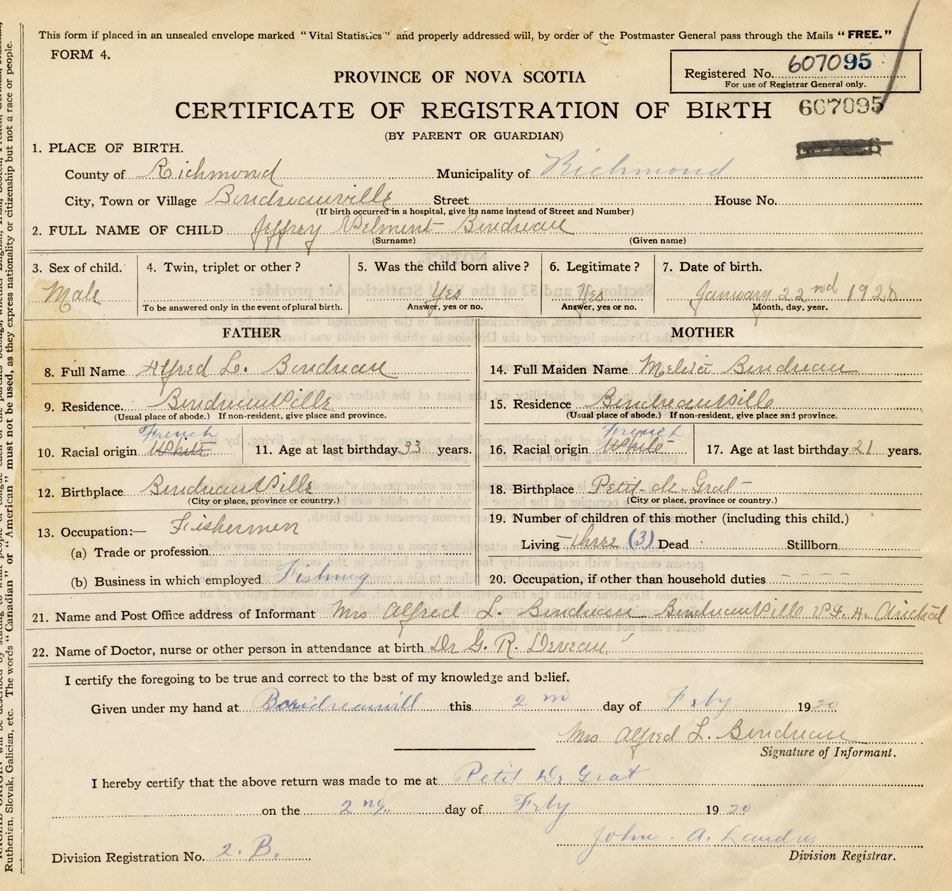 This form if placed in an unsealed envelope marked "Vital Statistics" and properly addressed will, by order of the Postmaster General pass through the Mails "FREE."
FORM 4.
Registered No. 607095
For use of Registrar General only.
PROVINCE OF NOVA SCOTIA
CERTIFICATE OF REGISTRATION OF BIRTH 607095
(BY PARENT OR GUARDIAN)
1. PLACE OF BIRTH.
County of Richmond Municipality of Richmond
City, Town or Village Boudreauville Street House No.
(If birth occurred in a hospital, give its name instead of Street and Number)
2. FULL NAME OF CHILD Jeffrey Boudreau
(Surname) (Given name)
3. Sex of child. 4. Twin, triplet or other? 5. Was the child born alive? 6. Legitimate? 7. Date of birth.
Male Yes Yes January 22nd 1920
To be answered only in the event of plural birth. Answer, yes or no. Answer, yes or no. Month, day, year.
FATHER MOTHER
8. Full Name Alfred L. Boudreau
14. Full Maiden Name Boudreau
9. Residence. BoudreauVille
(Usual place of abode.) If non-resident, give place and province.
15. Residence BoudreauVille
(Usual place of abode.) If non-resident, give place and province.
French
10. Racial origin White 11. Age at last birthday 33 years.
French
16. Racial origin White 17. Age at last birthday 21 years.
12. Birthplace BoudreauVille
(City or place, province or country.)
18. Birthplace Petit-de-Grat
(City or place, province or country.)
13. Occupation:— Fishermen
(a) Trade or profession
(b) Business in which employed Fishing
19. Number of children of this mother (including this child.)
Living three (3) Dead Stillborn
20. Occupation, if other than household duties - - - -
21. Name and Post Office address of Informant Mrs Alfred L. Boudreau BoudreauVille
22. Name of Doctor, nurse or other person in attendance at birth Dr G. R. Deveau
I certify the foregoing to be true and correct to the best of my knowledge and belief.
Given under my hand at this 2 day of Feby 1920
Mrs Alfred L. Boudreau
Signature of Informant.
I hereby certify that the above return was made to me at Petit De Grat
on the 2nd day of Feby 1920
John A. Landry
Division Registration No. 2. B. Division Registrar.